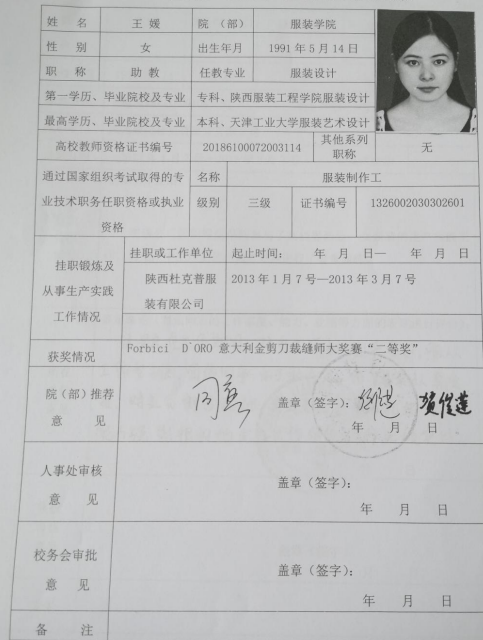 姓 名 王媛 院（部） 服装学院
性 别 女 出生年月 1991年5月14日
职 称 助教 任教专业 服装设计
第一学历、毕业院校及专业 专科、陕西服装工程学院服装设计
最高学历、毕业院校及专业 本科、天津工业大学服装艺术设计
高校教师资格证书编号 20186100072003114 其他系列职称 无
通过国家组织考试取得的专业技术职务任职资格或执业资格 名称 服装制作工
级别 三级 证书编号 1326002030302601
挂职锻炼及从事生产实践工作情况 挂职或工作单位 起止时间： 年 月 日— 年 月 日
陕西杜克普服装有限公司 2013年1月7号—2013年3月7号
获奖情况 Forbici D`ORO 意大利金剪刀裁缝师大奖赛“二等奖”
院（部）推荐意 见 同意 盖章（签字）： 贺俊莲
年 月 日
人事处审核意 见 盖章（签字）：
年 月 日
校务会审批意 见 盖章（签字）：
年 月 日
备 注